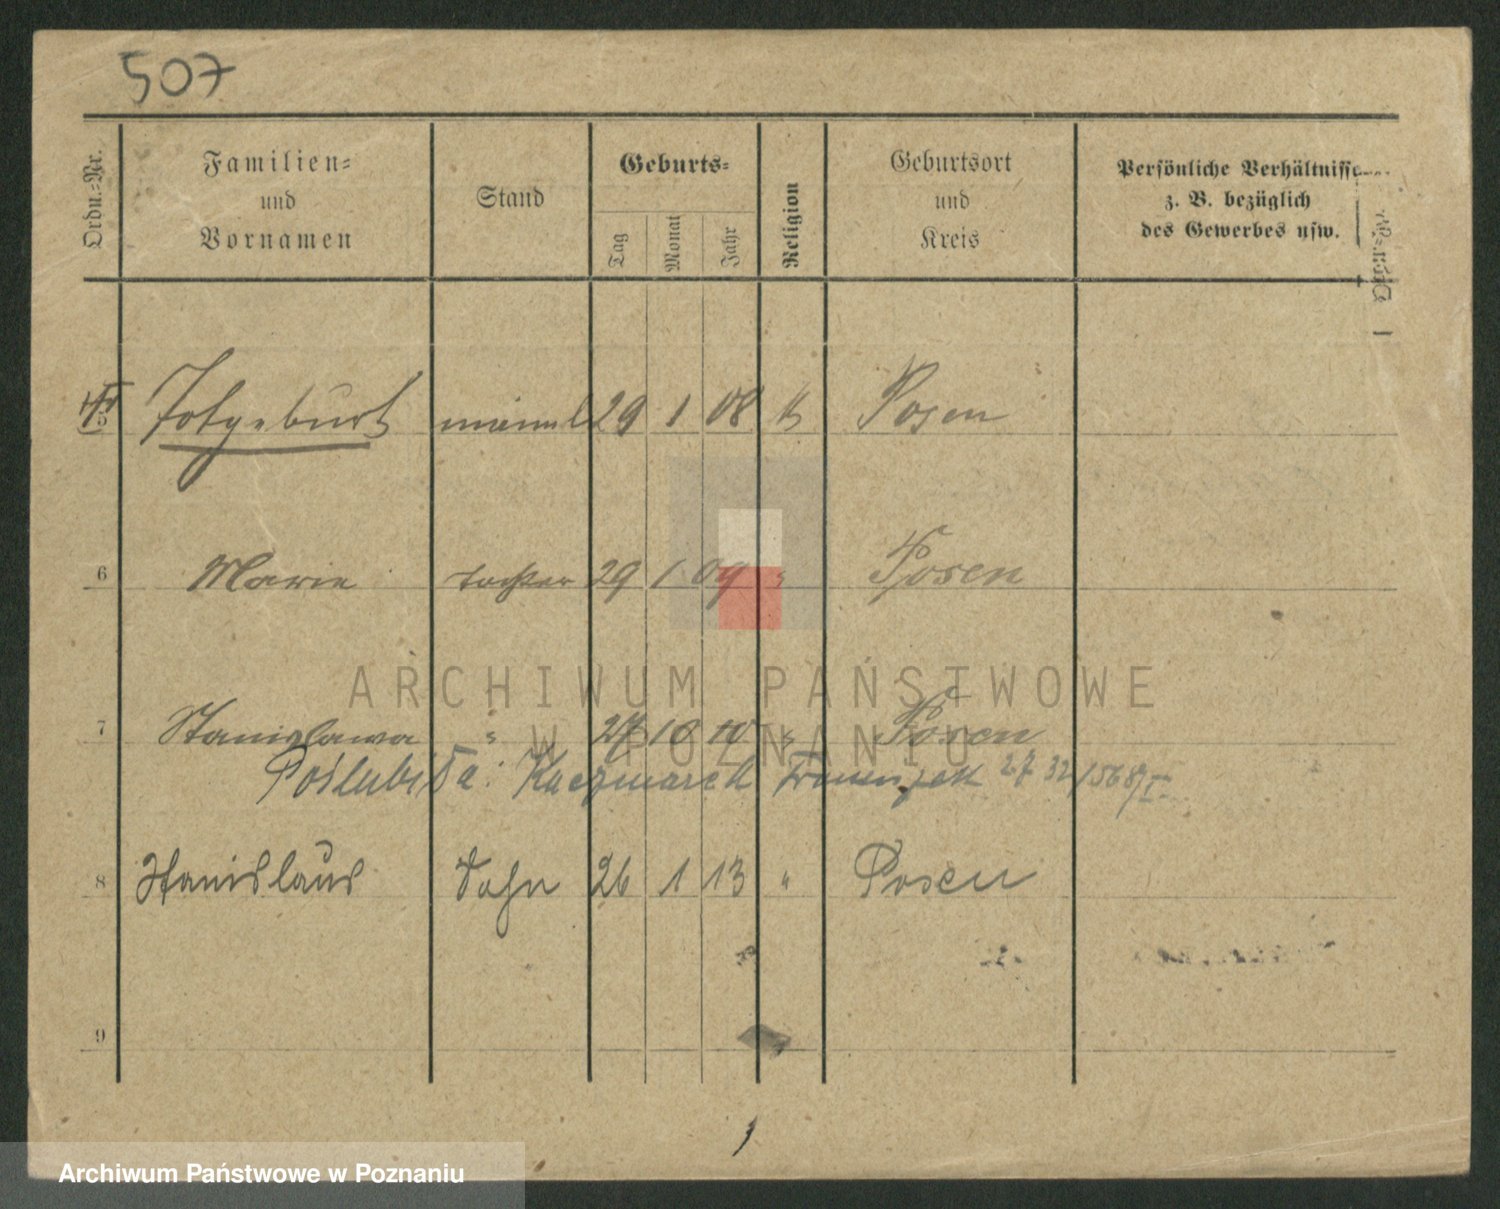 507
Ordn.=Nr. Familien= und Vornamen Stand Geburts= Tag Monat Jahr Religion Geburtsort und Kreis Persönliche Verhältnisse z. B. bezüglich des Gewerbes usw.
Totgeburt männl 29 1 08 K Posen
6 Marie tochter 29 1 09 " Posen
7 Stanislawa " 27 10 10 " Posen
Poślubiła: Kaczmarek 27 32
8 Stanislaus Sohn 26 1 13 " Posen
9
ARCHIWUM PAŃSTWOWE
W POZNANIU
Archiwum Państwowe w Poznaniu